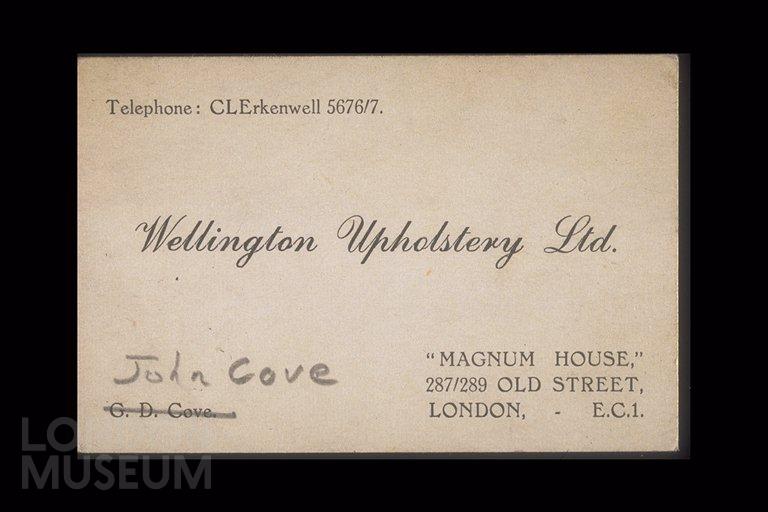 Telephone: CLErkenwell 5676/7.
Wellington Upholstery Ltd.
John Cove
G. D. Cove.
"MAGNUM HOUSE,"
287/289 OLD STREET,
LONDON, - E.C.1.
LO
MUSEUM